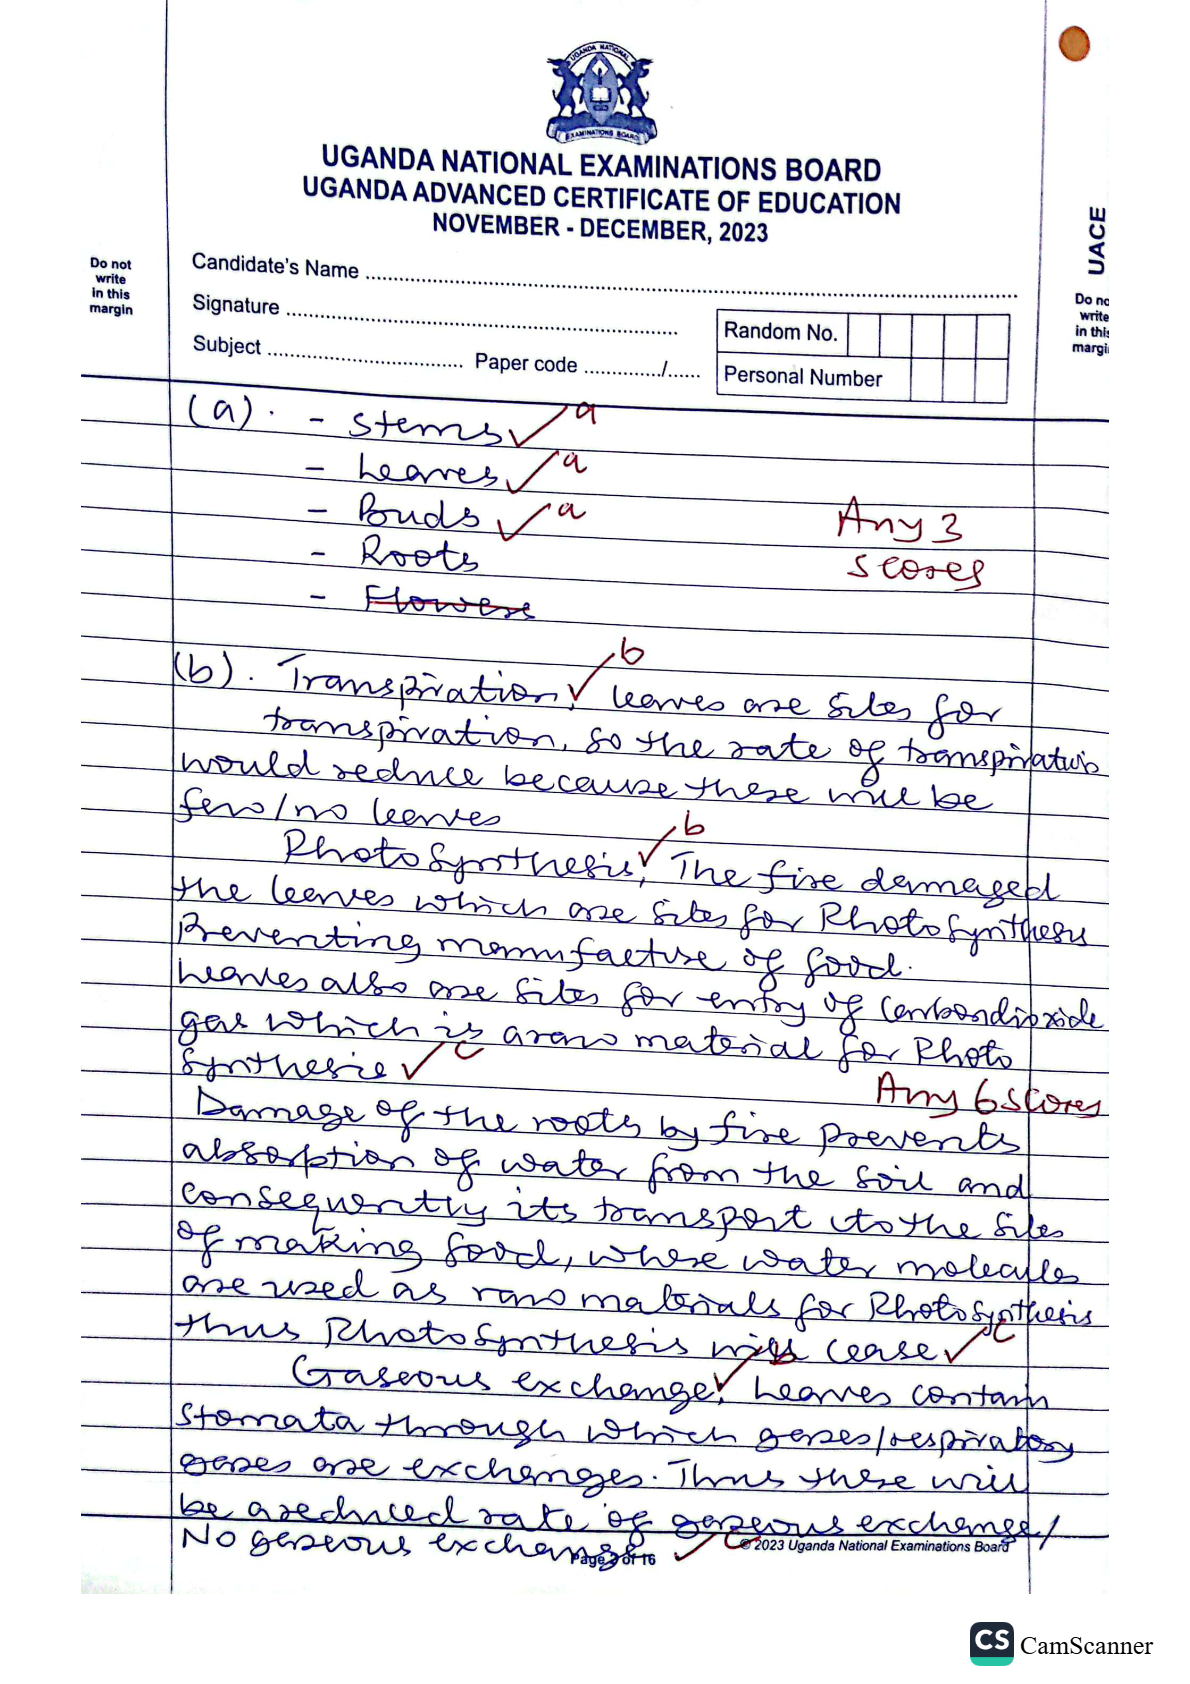 UGANDA NATIONAL
EXAMINATIONS BOARD
UGANDA NATIONAL EXAMINATIONS BOARD
UGANDA ADVANCED CERTIFICATE OF EDUCATION
NOVEMBER - DECEMBER, 2023
UACE
Do not
write
in this
margin
Do no
write
in this
margi
Candidate's Name
Signature
Subject Paper code /
Random No.
Personal Number
(a). - Stems ✓a
- Leaves ✓a
- Buds ✓a
- Roots
- Flowers
Any 3
scores
(b). Transpiration, ✓b leaves are sites for
transpiration, so the rate of transpiration
would reduce because there will be
few/no leaves
Photosynthesis, ✓b The fire damaged
the leaves which are sites for Photosynthesis
Preventing manufacture of food.
Leaves also are sites for entry of Carbondioxide
gas which is a raw material for Photo
synthesis ✓c
Any 6 scores
Damage of the roots by fire prevents
absorption of water from the soil and
consequently its transport to the sites
of making food, where water molecules
are used as raw materials for Photosynthesis
thus Photosynthesis will cease ✓c
Gaseous exchange, ✓b Leaves contain
stomata through which gases/respiratory
gases are exchanges. Thus there will
be a reduced rate of gaseous exchange/
No gaseous exchange ✓c
Page of 16
© 2023 Uganda National Examinations Board
CS CamScanner